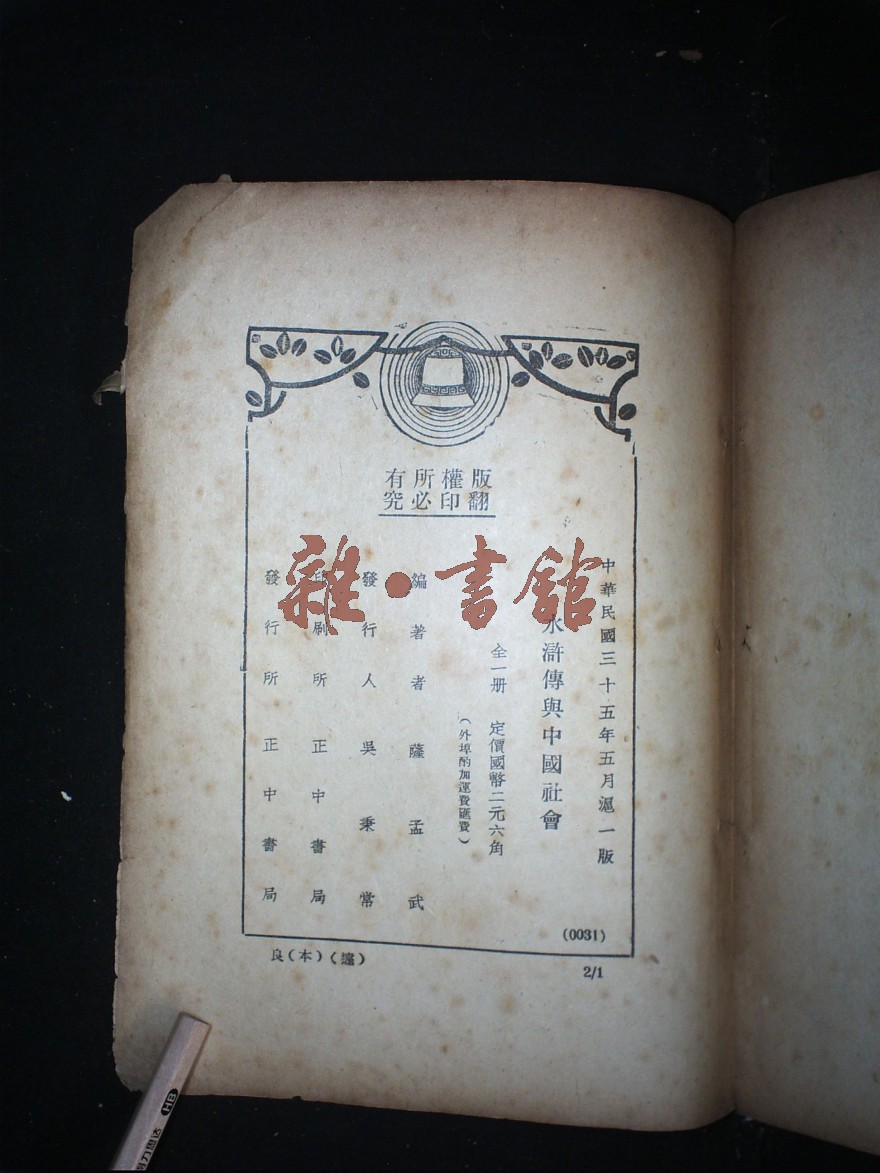 版權所有
翻印必究
中華民國三十五年五月滬一版
水滸傳與中國社會
全一册 定價國幣二元六角
(外埠酌加運費匯費)
編著者 薩孟武
發行人 吳秉常
印刷所 正中書局
發行所 正中書局
(0031)
良(本)(遠)
2/1
雜·書館
HB